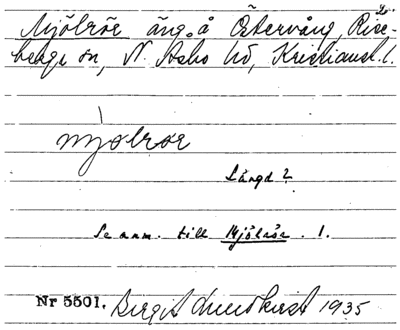 Mjölrör äng. å Östervång, Rise-
berga sn, N. Åsbo hd, Kristianst. l.
mjölrör
Längd 2
Se anm. till Mjölrör. 1.
Nr 5501. Birgit Lundkvist 1935